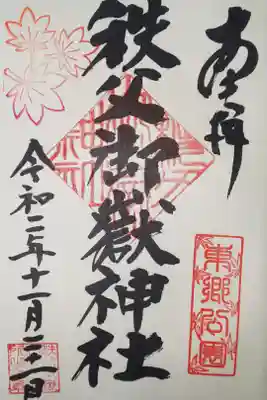 奉拝
東郷公園
秩父御嶽神社
令和二年十一月日